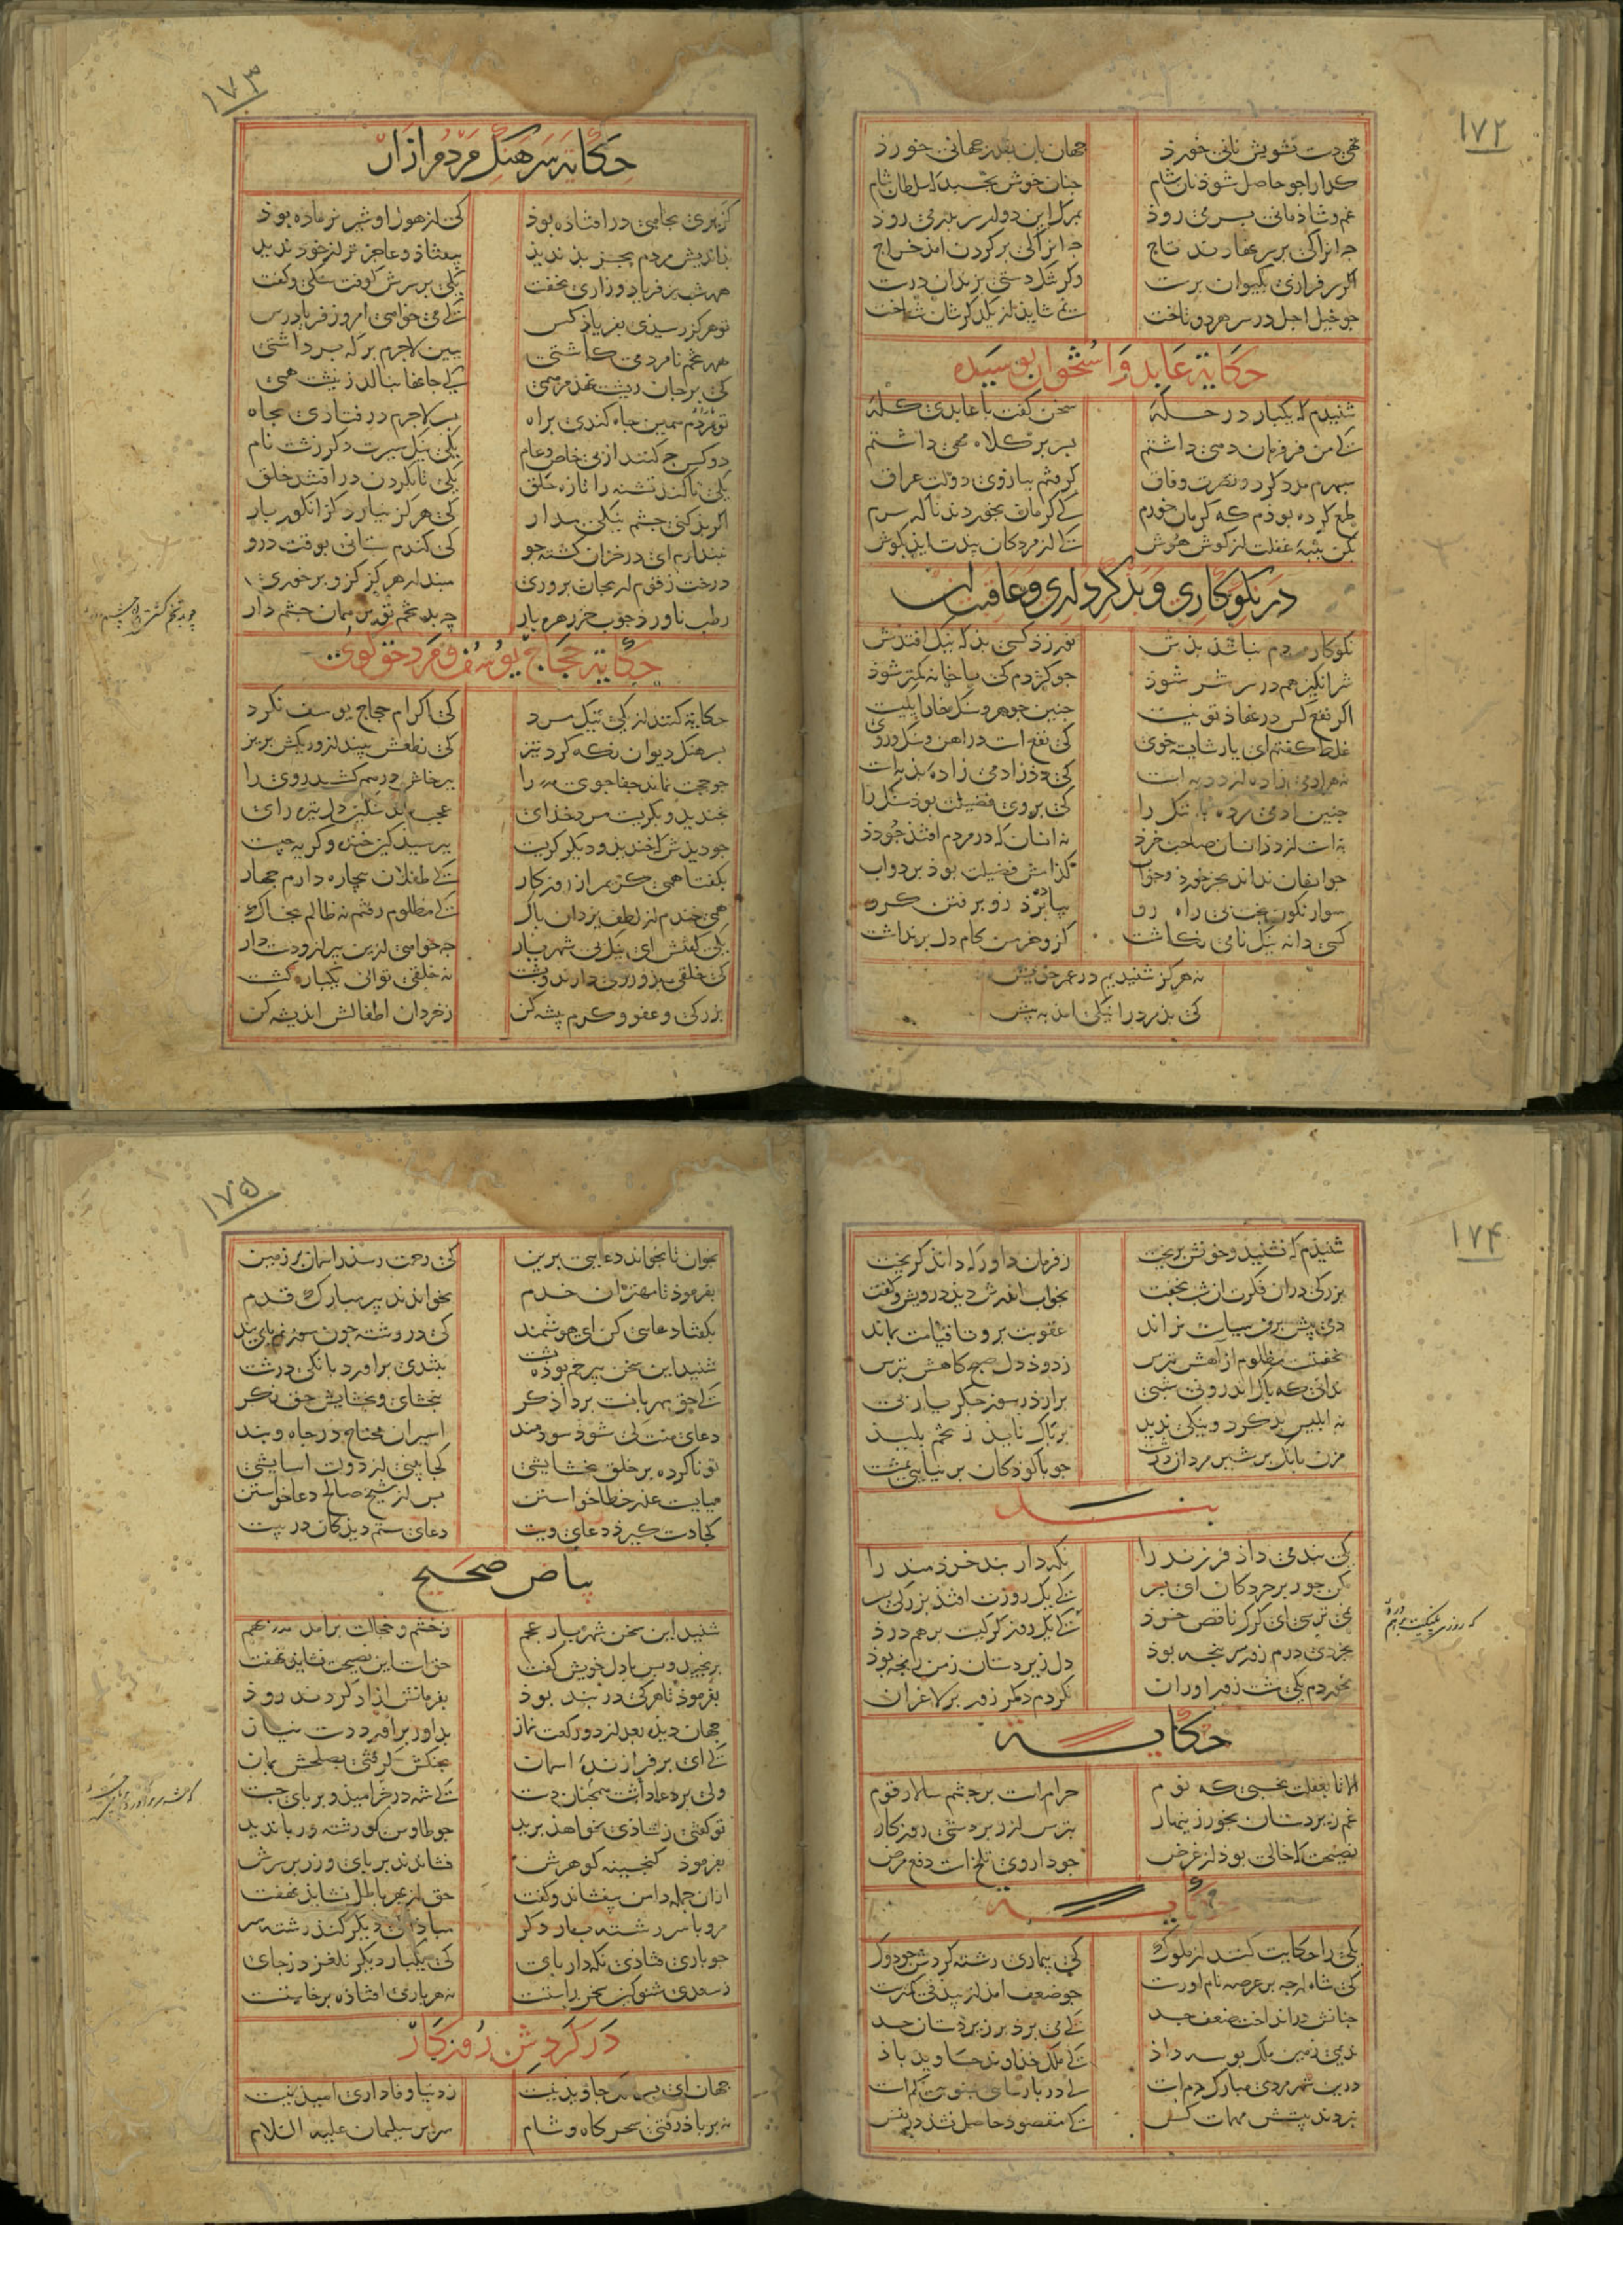 ۱۷۲
تهی دست تشویش نانی خورذ جهان بان بقدر جهانی خورذ
کدا را جو حاصل شوذ نان شام جنان خوش بخسبد که سلطان شام
غم و شاذمانی بسر می روذ بمرک این دو از سر بدر می روذ
جه انرا کی بر سر نهادند تاج جه انرا کی بر کردن امذ خراج
اکر سرفرازی بکیوان برست وکر تنکدستی بزندان درست
جو خیل اجل در سر هر دو تاخت نمی شاید از یکدکرشان شناخت
حکایة عابد و استخوان بوسیده
شنیدم که یکبار در حلهٔ سخن کفت با عابدی کلهٔ
کی من فر فرمان دهی داشتم بسر بر کلاه مهی داشتم
سپهرم مدد کرد و نصرت وفاق کرفتم ببازوی دولت عراق
طمع کرده بوذم که کرمان خورم کی کرمان بخوردند ناکه سرم
بکن پنبهٔ غفلت از کوش هوش کی از مردکان پندت ایذ بکوش
در نکوکاری و بذکرداری و عاقبت ان
نکوکار مردم نباشد بذش نورزذ کسی بذ که نیک افتدش
شر انکیز هم در سر شر شوذ جو کژدم کی با خانه کمتر شوذ
اکر نفع کس در نهاذ تو نیست جنین جوهر و سنک خارا یکیست
غلط کفتم ای یار شایسته خوی کی نفع است در اهن و سنک و روی
جنین ادمی مرده به ننک را کی بر وی فضیلت بود سنک را
نه هر ادمی زاده از دد به است کی دد ز ادمی زادهٔ بذ به است
به است از دد انسان صاحب خرذ نه انسان که در مردم افتد جو دذ
جو انسان نداند بجز خورد و خواب کدامش فضیلت بوذ بر دواب
سوار نکون بخت بی راه رو پیاده برذ زو برفتن کرو
کسی دانه نیک نامی نکاشت کزو خرمن کام دل برنداشت
نه هرکز شنیدیم در عمر خویش
کی بذ مرد را نیکی امذ به پیش
۱۷۳
حکایة سرهنک مردم ازار
کزیری بجاهی در افتاذه بوذ کی از هول او شیر نر ماده بوذ
بذاندیش مردم بجز بذ ندید بیفتاذ و عاجزتر از خود ندید
همه شب ز فریاد و زاری نخفت یکی بر سرش کوفت سنکی و کفت
تو هرکز رسیذی بفریاذ کس کی می خواهی امروز فریادرس
همه تخم نامردمی کاشتی ببین لاجرم بر که برداشتی
کی بر جان ریشت نهد مرهمی کی جانها بنالد ز نیشت همی
تو مردم همین جاه کندی براه بسر لاجرم در فتادی بجاه
دو کس جه کنند از پی خاص و عام یکی نیک سیرت دکر زشت نام
یکی تا کند تشنه را تازه حلق یکی تا بکردن در افتند خلق
اکر بذ کنی چشم نیکی مدار کی هرکز نیارد کز انکور بار
نپندارم ای در خزان کشته جو کی کندم ستانی بوقت درو
درخت زقوم ار بجان پروری مپندار هرکز کزو بر خوری
رطب ناورذ جوب خرزهره بار چه بد تخم توبی همان چشم دار
حکایة حجاج یوسف و مرد حق کوی
حکایة کنند از یکی نیک مرد کی اکرام حجاج یوسف نکرد
بسرهنک دیوان نکه کرد تیز کی نطعش بینداز و ریکش بریز
جو حجت نماند جفاجوی را بپرخاش درهم کشد روی را
بخندید و بکریست مرد خذای عجب ماند سنکین دل تیره رای
جو دیذش که خندید و دیکر کریست بپرسید کین خنده و کریه چیست
بکفتا همی کریم از روزکار کی طفلان بیچاره دارم جهار
همی خندم از لطف یزدان پاک کی مظلوم رفتم نه ظالم بخاک
یکی کفتش ای نیک پی شهریار جه خواهی ازین پیر ازو دست دار
کی خلقی برو روی دارند و پشت نه خلقی توانی بیکباره کشت
بزرکی و عفو و کرم پیشه کن ز خردان اطفالش اندیشه کن
۱۷۴
شنیذم که نشنید و خونش بریخت ز فرمان داور که داند کریخت
بزرکی دران فکرت ان شب بخفت بخواب اندرش دید درویش و کفت
دمی بیش بر من سیاست نراند عقوبت برو تا قیامت بماند
نخفتست مظلوم از آهش بترس ز دوذ دل صبح کاهش بترس
نه ابلیس بد کرد و نیکی ندید بر پاک ناید ز تخم پلید
مزن بانک بر شیر مردان درشت جو با کوذکان بر نیایی بمشت
پند
یکی پند می داذ فرزند را نکه دار پند خردمند را
مکن جور بر خردکان ای پسر کی یک روزت افتد بزرکی بسر
نمی ترسی ای کرک ناقص خرد کی یک روز کرکیت برهم درد
بخردی درم زور سر پنجه بوذ دل زیردستان ز من رنجه بوذ
بخوردم یکی مشت زور اوران نکردم دکر زور بر لاغران
حکایة
الا تا بغفلت نخسبی که نوم حرام است بر چشم سالار قوم
غم زیردستان بخور زینهار بترس از زبردستی روزکار
نصیحت که خالی بوذ از غرض جو داروی تلخ است دفع مرض
حکایة
یکی را حکایت کنند از ملوک کی بیماری رشته کردش جو دوک
جنانش در انداخت ضعف جسد کی می برد بر زیردستان حسد
کی شاه ارجه بر عرصه نام اورست جو ضعف امذ از بیدقی کمترست
ندیمی زمین ملک بوسه داذ کی ملک خذاوند جاوید باذ
درین شهر مردی مبارک دم است
نبردند پیشش مهمات کس کی مقصوذ حاصل نشد در نفس
۱۷۵
بخوان تا بخواند دعایی برین کی رحمت رسد ز اسمان بر زمین
بفرموذ تا مهتران خدم بخواندند پیر مبارک قدم
بکفتا دعایی کن ای هوشمند کی در رشته جون سوزنم پای بند
شنید این سخن پیر خم بوده پشت بتندی براورد بانکی درشت
کی حق مهربانست بر دادکر ببخشای و بخشایش حق نکر
دعای منت کی شوذ سودمند اسیران محتاج در جاه و بند
تو ناکرده بر خلق بخشایشی کجا بینی از دولت اسایشی
ببایست عذر خطا خواستن پس از شیخ صالح دعا خواستن
کجا دست کیرذ دعای ویت دعای ستم دیذکان در پیت
بیاض صحیح
شنید این سخن شهریار عجم ز خشم و خجالت برامد بهم
برنجید و پس با دل خویش کفت حق است این نصیحت نشاید نهفت
بفرموذ تا هر کی در بند بوذ بفرمانش ازاد کردند زوذ
جهان دیذه بعد از دو رکعت نماز بداور براورد دست نیاز
کی ای برفرازندهٔ اسمان بجنکش کرفتی بصلحش بمان
ولی بر دعا داشت همچنان دست کی شه سر برامید و بر پای جست
تو کفتی ز شاذی بخواهذ پرید جو طاوس کو رشته در پا ندید
بفرموذ کنجینه کوهرش فشاندند بر پای و زر بر سرش
حق از بهر باطل نشاید نهفت ازان جمله دامن بیفشاند و کفت
مرو با سر رشته بار دکر مباذا کی دیکر کند رشته سر
جو باری فتاذی نکه دار پای کی یکبار دیکر نلغزد ز جای
ز سعدی شنو کین سخن راستست نه هر باری افتاذه برخاستست
در کردش روزکار
جهان ای پسر ملک جاوید نیست ز دنیا وفاداری امید نیست
نه بر باذ رفتی سحرکاه و شام سریر سلیمان علیه السلام